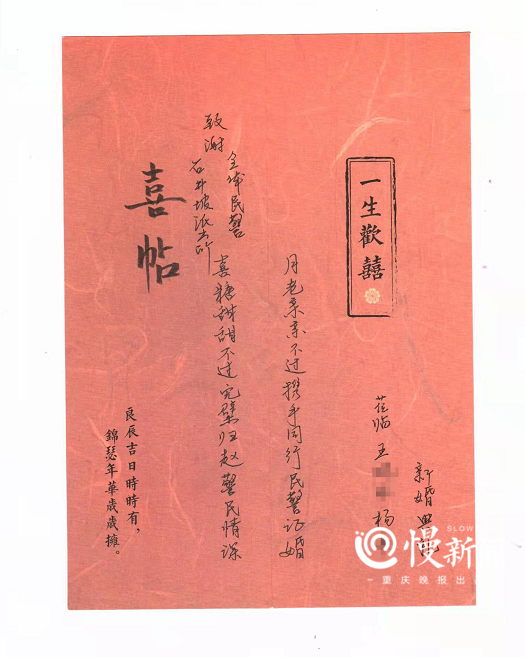 新婚典
莅临王
杨
一生歡囍
月老亲亲不过携手同行民警证婚
喜糖甜甜不过完璧归赵警民情深
致谢
石井坡派出所
全体民警
喜帖
良辰吉日時時有，
錦瑟年華歲歲擁。
SLOW
慢新
重庆晚报出